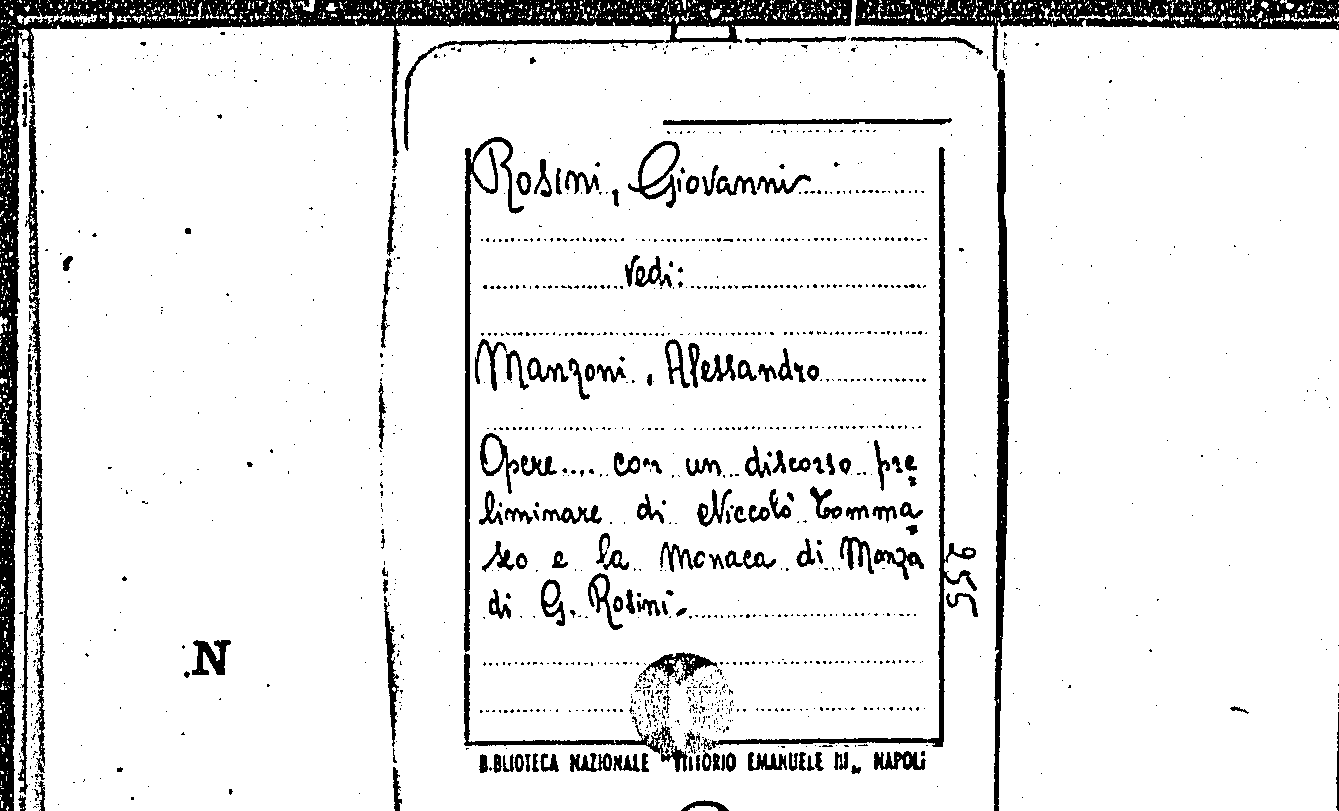 Rosini, Giovanni
vedi:
Manzoni, Alessandro
Opere.... con un discorso pre=
liminare di Niccolò Tomma=
seo e la Monaca di Monza
di G. Rosini.
255
N
BIBLIOTECA NAZIONALE "VITTORIO EMANUELE III„ NAPOLI